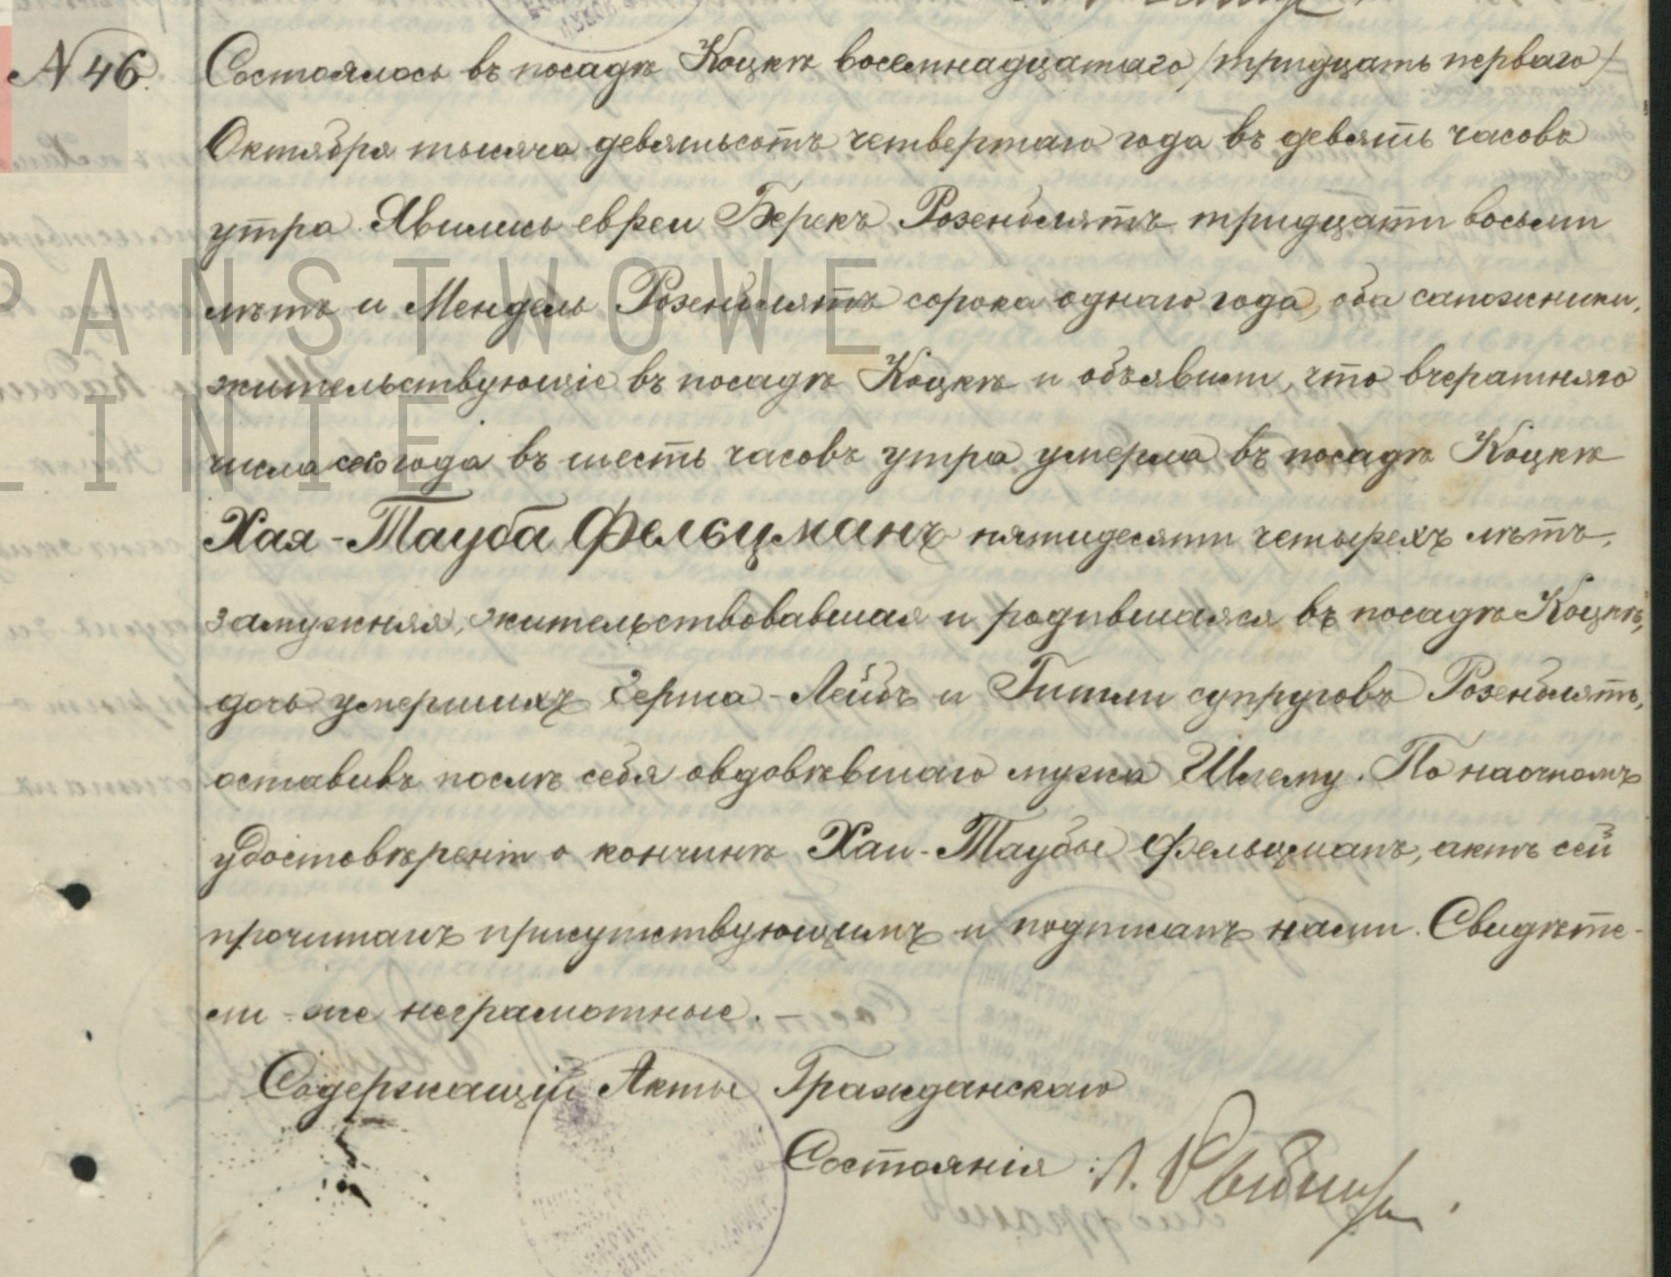 № 46.
Состоялось въ посадѣ Коцкѣ восемнадцатаго /тридцать перваго/
Октября тысяча девятьсотъ четвертаго года въ девять часовъ
утра. Явились евреи Берекъ Розенблятъ тридцати восьми
лѣтъ и Мендель Розенблятъ сорока одного года, оба сапожники,
жительствующіе въ посадѣ Коцкѣ и объявили, что вчерашняго
числа сего года въ шесть часовъ утра умерла въ посадѣ Коцкѣ
Хая-Тауба Фельцманъ пятидесяти четырехъ лѣтъ,
замужняя, жительствовавшая и родившаяся въ посадѣ Коцкѣ,
дочь умершихъ Герша-Лейбъ и Гитли супруговъ Розенблятъ,
оставивъ послѣ себя овдовѣвшаго мужа Шлему. По наочномъ
удостовѣреніи о кончинѣ Хаи-Таубы Фельцманъ, актъ сей
прочитанъ присутствующимъ и подписанъ нами. Свидѣте-
ли-же неграмотные. —
Содержащій Акты Гражданскаго
Состоянія:
PANSTWOWE
LINIE